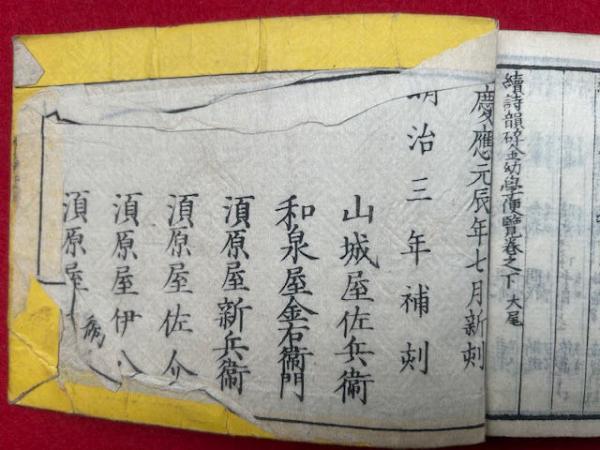 續詩韻碎金幼學便覽卷之下 大尾
慶應元辰年七月新刻
明治三年補刻
山城屋佐兵衞
和泉屋金右衞門
須原屋新兵衞
須原屋佐介
須原屋伊八
須原屋